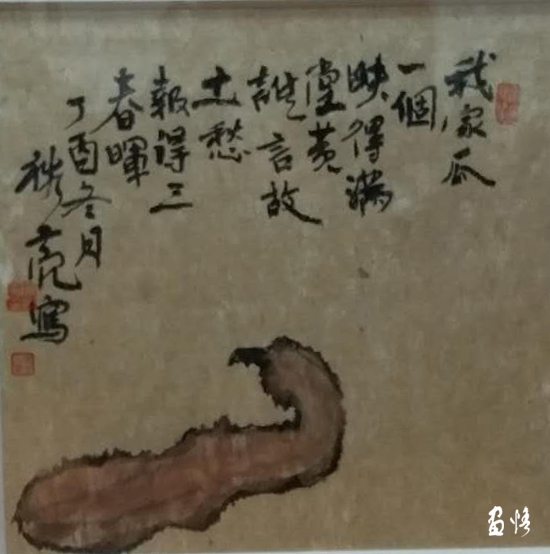 我家瓜
一個
映得滿
堂黄
誰言故
土愁
報得三
春暉
丁酉冬月
亮寫
畫悟